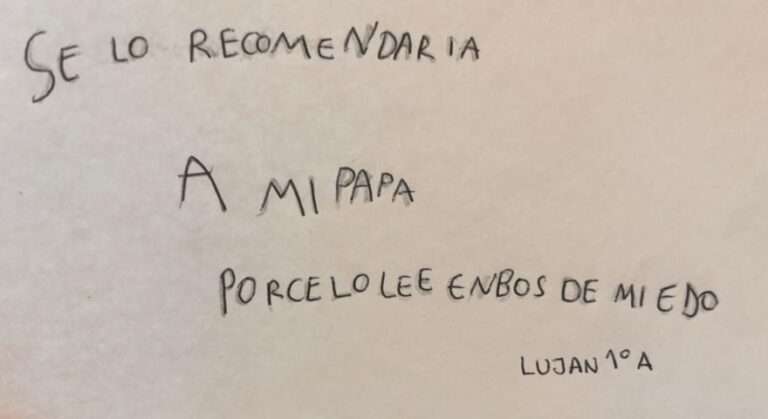 SE LO RECOMENDARIA
A MI PAPA
PORCELOLEE ENBOS DE MIEDO
LUJAN 1º A